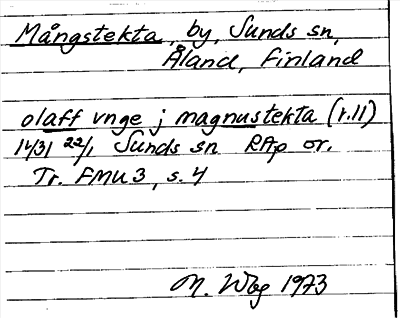 Mångstekta, by, Sunds sn,
Åland, Finland
olaff vnge j magnustekta (r.11)
1431 22/1 Sunds sn RAp or.
Tr. FMU 3, s. 4
M. Wbg 1973